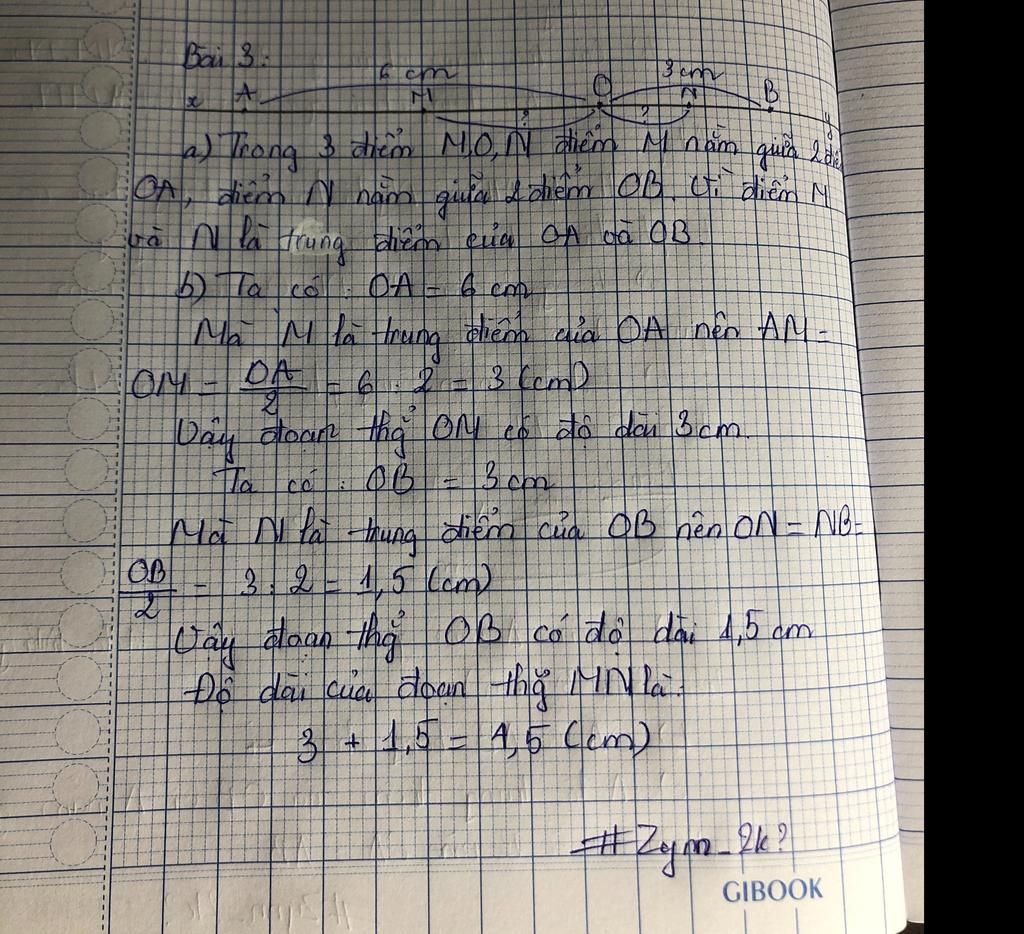 Bài 3:
6 cm 3 cm
x A M O N B y
? ?
a) Trong 3 điểm M,O,N điểm M nằm giữa 2 điể
OA, điểm N nằm giữa 2 điểm OB. Vì điểm M
và N là trung điểm của OA và OB
b) Ta có : OA = 6 cm
Mà M là trung điểm của OA nên AM =
OM = OA/2 = 6 : 2 = 3 (cm)
Vậy đoạn thg̉ OM có độ dài 3cm.
Ta có : OB = 3 cm
Mà N là trung điểm của OB nên ON = NB =
OB/2 = 3 : 2 = 1,5 (cm)
Vậy đoạn thg̉ OB có độ dài 1,5 cm
Độ dài của đoạn thg̉ MN là:
3 + 1,5 = 4,5 (cm)
#Zym_2k?
GIBOOK